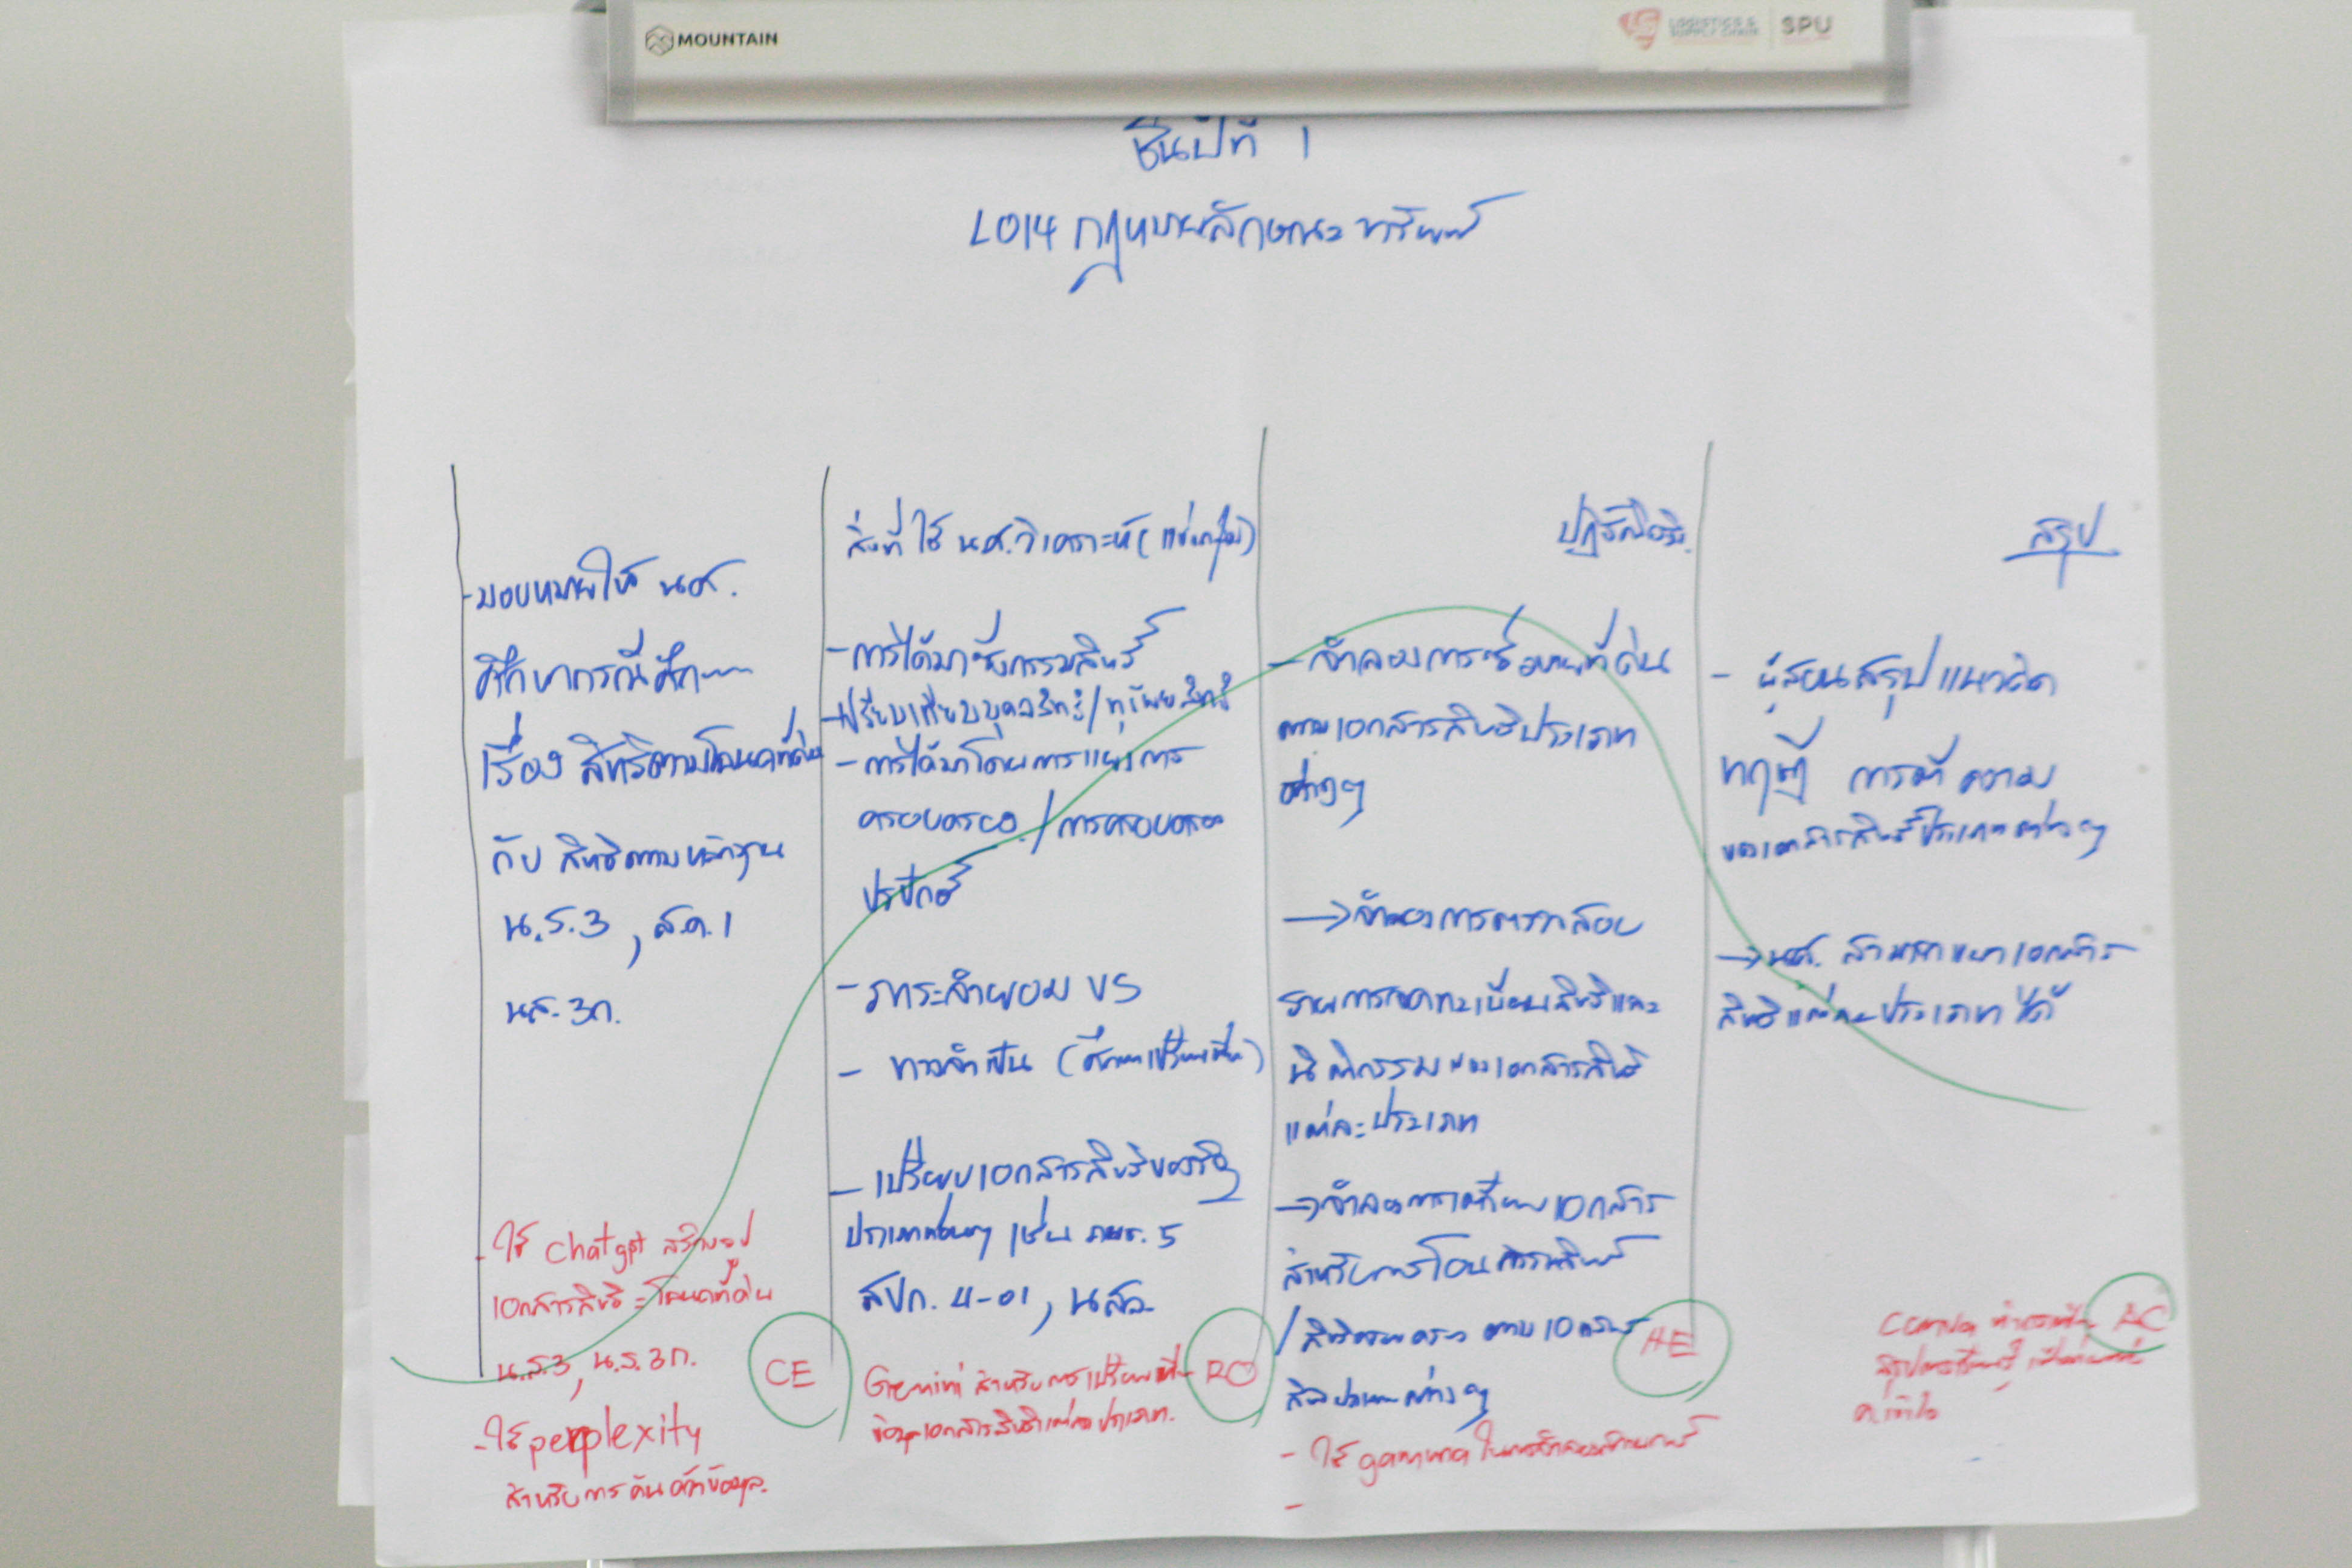 MOUNTAIN
LOGISTICS &
SUPPLY CHAIN
SPU
ชั้นปีที่ 1
LO14 กฎหมายลักษณะทรัพย์
- มอบหมายให้ นศ.
ศึกษากรณีศึกษา
เรื่อง สิทธิตามโฉนดที่ดิน
กับ สิทธิตามหลักฐาน
น.ส.3 , ส.ค.1
นส.3ก.
- ใช้ Chatgpt สร้างรูป
เอกสารสิทธิ = โฉนดที่ดิน
น.ส.3, น.ส.3ก.
- ใช้ perplexity
สำหรับการค้นคว้าข้อมูล.
CE
สิ่งที่ใช้ นศ.วิเคราะห์ (แบ่งกลุ่ม)
- การได้มาซึ่งกรรมสิทธิ์
- เปรียบเทียบบุคคลสิทธิ์/ทรัพยสิทธิ์
- การได้มาโดยการแย่งการ
ครอบครอง / การครอบครอง
ปรปักษ์
- ภาระจำยอม VS
- ทางจำเป็น (ศึกษาเปรียบเทียบ)
- เปรียบเอกสารสิทธิของรัฐ
ประเภทอื่นๆ เช่น ภบท. 5
สปก. 4-01, นสล
Gemini สำหรับการเปรียบเทียบ
ข้อมูลเอกสารสิทธิแต่ละประเภท.
RO
ปฏิบัติจริง
- จำลองการซื้อขายที่ดิน
ตามเอกสารสิทธิประเภท
ต่างๆ
→ จำลองการตรวจสอบ
รายการจดทะเบียนสิทธิและ
นิติกรรมของเอกสารสิทธิ
แต่ละประเภท
→ จำลองการเตรียมเอกสาร
สำหรับการโอนกรรมสิทธิ์
/ สิทธิครอบครอง ตามเอกสาร
สิทธิประเภทต่างๆ
AE
- ใช้ gamma ในการจำลองสถานการณ์
สรุป
- ผู้สอนสรุปแนวคิด
ทฤษฎี การตีความ
ของเอกสารสิทธิ์ประเภทต่างๆ
→ นศ. สามารถแยกเอกสาร
สิทธิแต่ละประเภทได้
AC